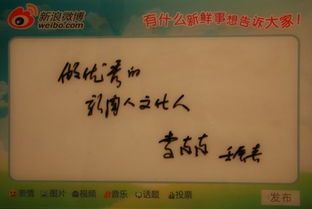 新浪微博
weibo.com
有什么新鲜事想告诉大家!
做优秀的
新闻人文化人
李芮芮 壬辰春
表情 图片 视频 音乐 话题 投票
发布